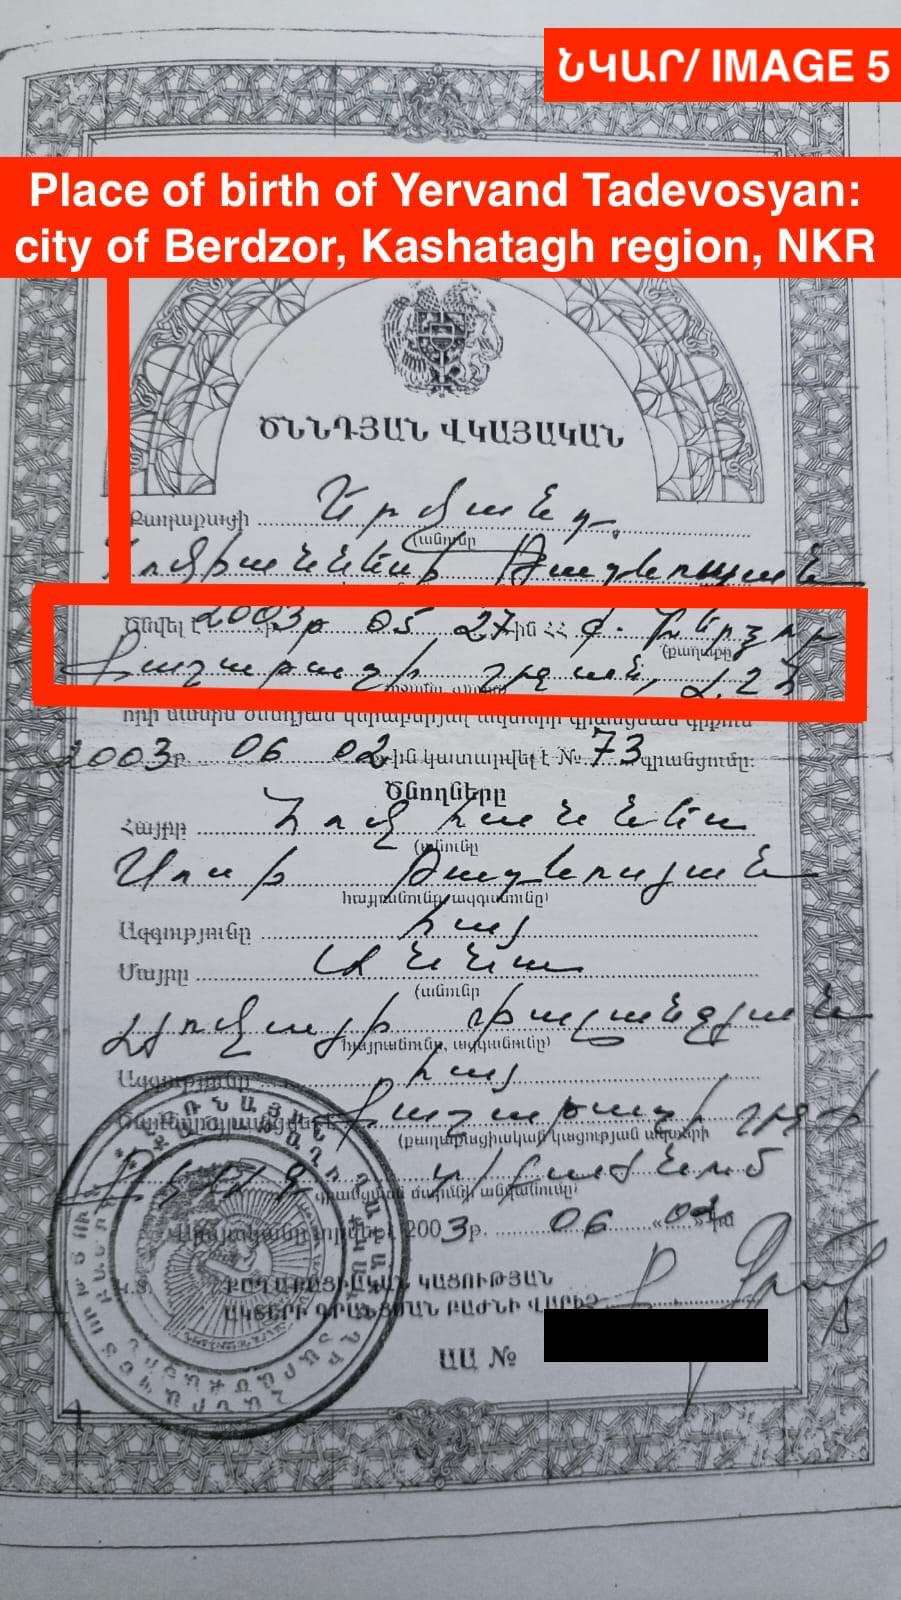 ՆԿԱՐ/ IMAGE 5
Place of birth of Yervand Tadevosyan:
city of Berdzor, Kashatagh region, NKR
ԾՆՆԴՅԱՆ ՎԿԱՅԱԿԱՆ
Քաղաքացի Երվանդ
(անունը
Հովհաննեսի Թադևոսյան
Ծնվել է 2003թ 05 27-ին ՀՀ ք. Բերձոր
(քաղաքը
Քաշաթաղի շրջան, ԼՂՀ
որի մասին ծննդյան վերաբերյալ ակտերի գրանցման գրքում
2003թ. 06 02-ին կատարվել է № 73 գրանցումը:
Ծնողները
Հայրը Հովհաննես
(անունը
Սոսի Թադևոսյան
հայրանունը, ազգանունը)
Ազգությունը հայ
Մայրը Աննա
(անունը
հայրանունը, ազգանունը)
Ազգությունը հայ
Քաշաթաղի շրջ-ի
(քաղաքացիական կացության ակտերի
ՔԿԱԳ բաժնում
գրանցման մարմնի անվանումը)
2003թ. 06 «02» ին
Կ.Տ. ՔԱՂԱՔԱՑԻԱԿԱՆ ԿԱՑՈՒԹՅԱՆ
ԱԿՏԵՐԻ ԳՐԱՆՑՄԱՆ ԲԱԺՆԻ ՎԱՐԻՉ
ԱԱ №